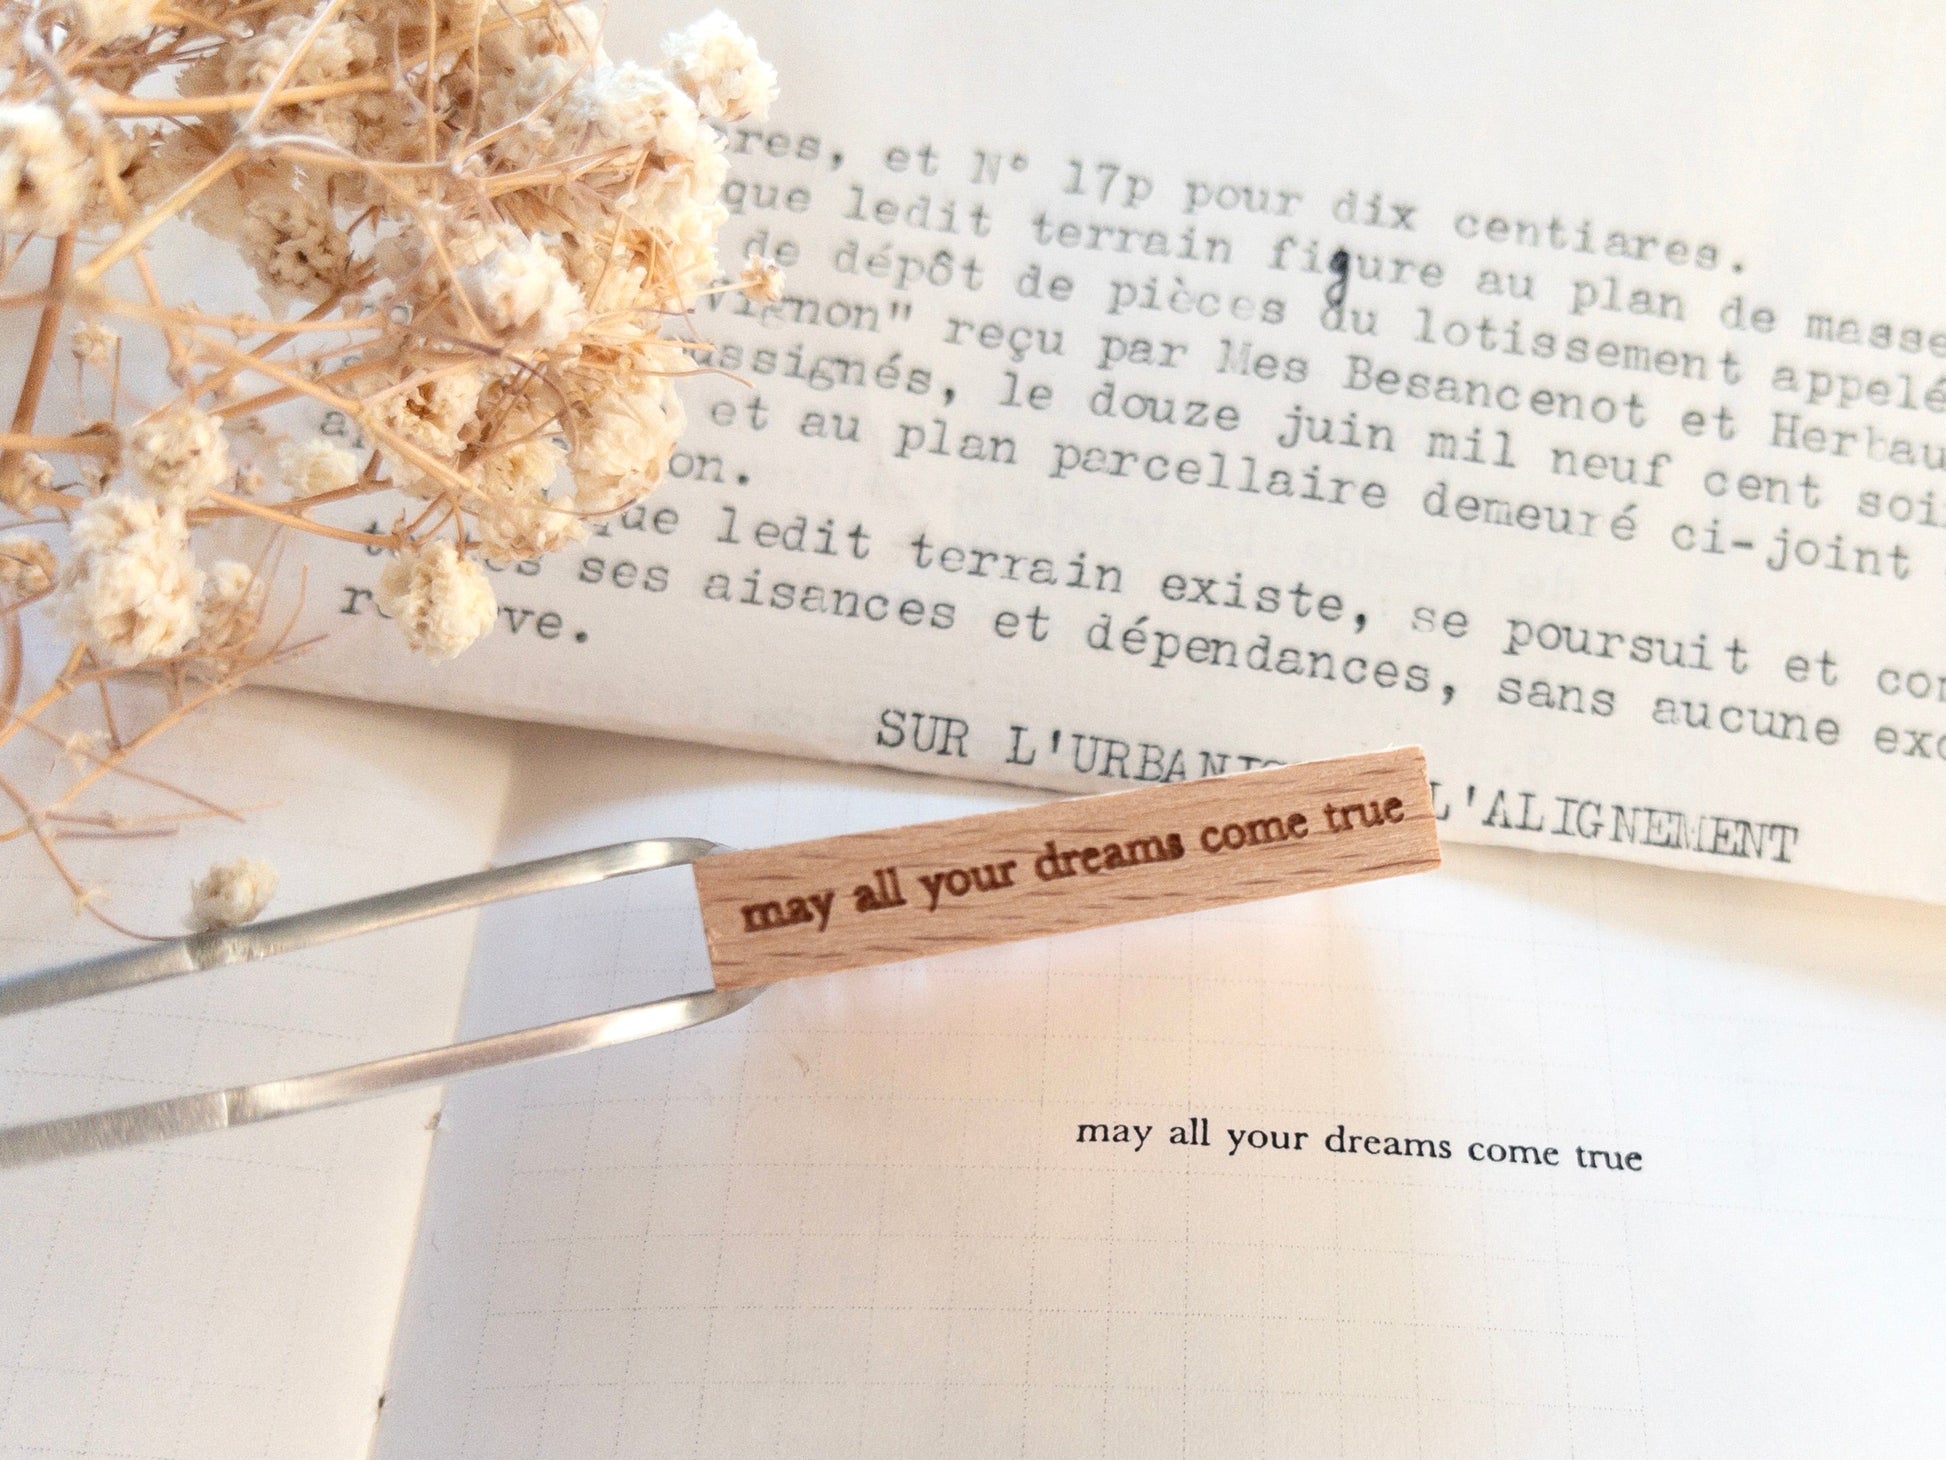 et N° 17p pour dix centiares.
que ledit terrain figure au plan de masse
de dépôt de pièces du lotissement appelé
reçu par Mes Besancenot et
le douze juin mil neuf cent
et au plan parcellaire demeuré ci-joint
ledit terrain existe, se poursuit et
ses aisances et dépendances, sans aucune
SUR L'ALIGNEMENT
may all your dreams come true
may all your dreams come true